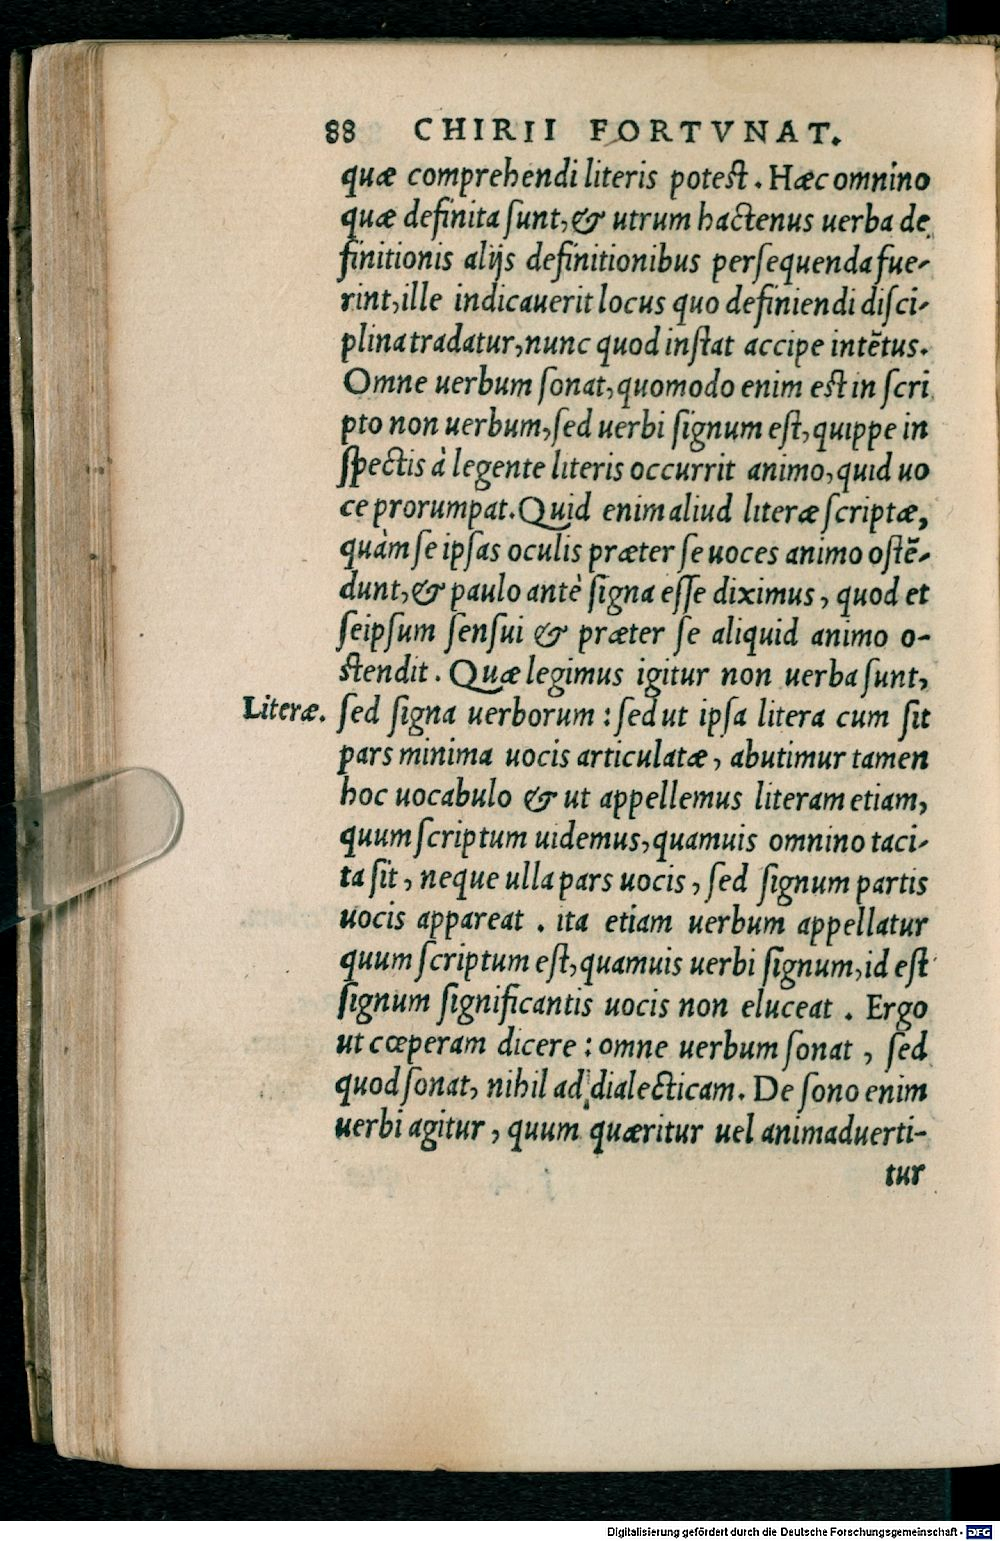 88 CHIRII FORTVNAT.
quæ comprehendi literis potest. Hæc omnino
quæ definita ſunt, & utrum hactenus uerba de
finitionis alijs definitionibus perſequenda fue-
rint, ille indicauerit locus quo definiendi diſci-
plina tradatur, nunc quod inſtat accipe intẽtus.
Omne uerbum ſonat, quomodo enim est in ſcri
pto non uerbum, ſed uerbi ſignum eſt, quippe in
ſpectis à legente literis occurrit animo, quid uo
ce prorumpat. Quid enim aliud literæ ſcriptæ,
quàm ſe ipſas oculis præter ſe uoces animo oſtẽ-
dunt, & paulo antè ſigna eſſe diximus, quod et
ſeipſum ſenſui & præter ſe aliquid animo o-
stendit. Quæ legimus igitur non uerba ſunt,
Literæ. ſed ſigna uerborum: ſed ut ipſa litera cum ſit
pars minima uocis articulatæ, abutimur tamen
hoc uocabulo & ut appellemus literam etiam,
quum ſcriptum uidemus, quamuis omnino taci-
ta ſit, neque ulla pars uocis, ſed ſignum partis
uocis appareat. ita etiam uerbum appellatur
quum ſcriptum eſt, quamuis uerbi ſignum, id eſt
ſignum ſignificantis uocis non eluceat. Ergo
ut cœperam dicere: omne uerbum ſonat, ſed
quod ſonat, nihil ad dialecticam. De ſono enim
uerbi agitur, quum quæritur uel animaduerti-
tur
Digitalisierung gefördert durch die Deutsche Forschungsgemeinschaft - DFG